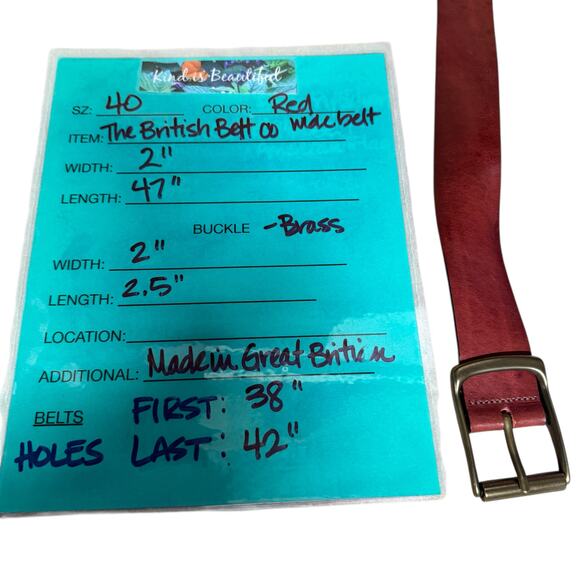 Kind is Beautiful
SZ: 40 COLOR: Red
ITEM: The British Belt Co Mac belt
WIDTH: 2"
LENGTH: 47"
BUCKLE - Brass
WIDTH: 2"
LENGTH: 2.5"
LOCATION:
ADDITIONAL: Made in Great Britian
BELTS FIRST: 38"
HOLES LAST: 42"